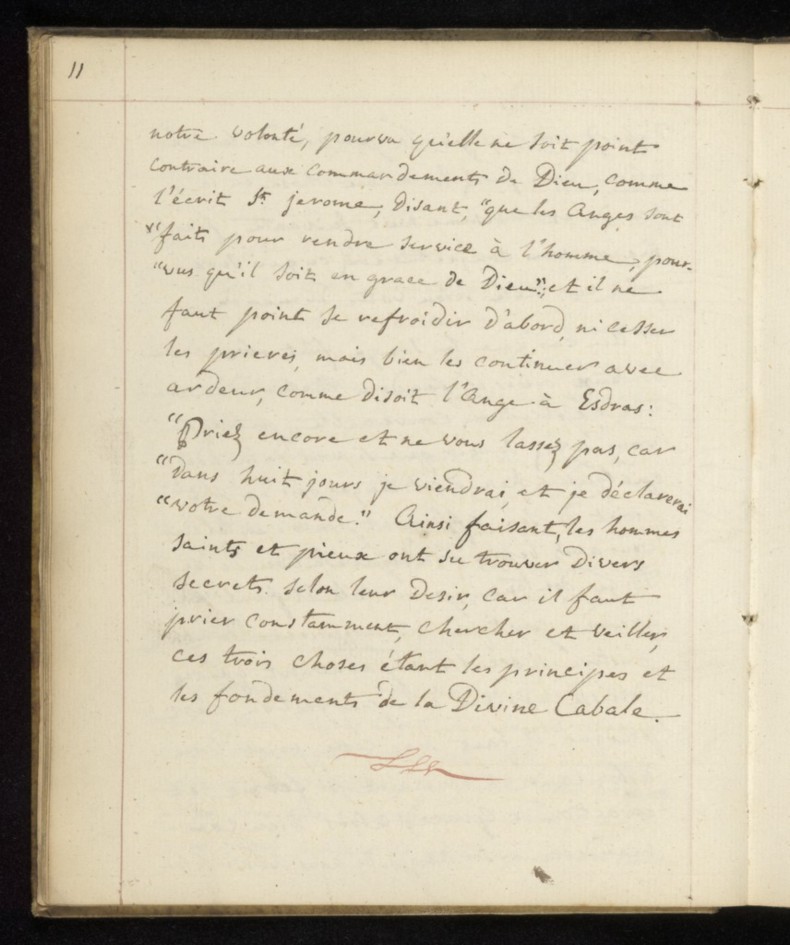 11
notre volonté, pourvu qu'elle ne soit point
contraire aux commandements de Dieu, comme
l'écrit St. jerome, disant, "que les Anges sont
"faits pour rendre service à l'homme, pour-
"vus qu'il soit en grace de Dieu"; et il ne
faut point se refroidir d'abord, ni cesser
les prieres, mais bien les continuer avec
ardeur, comme disoit l'Ange à Esdras:
"Priez encore et ne vous lassez pas, car
"Dans huit jours je viendrai, et je déclarerai
"votre demande." Ainsi faisant, les hommes
saints et pieux ont su trouver Divers
secrets selon leur Desir, car il faut
prier constamment, chercher et veiller,
ces trois choses étant les principes et
les fondements de la Divine Cabale.